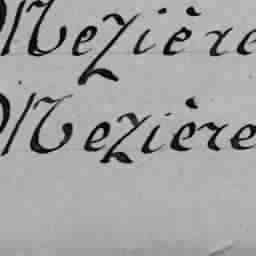 Mezière
Mezière